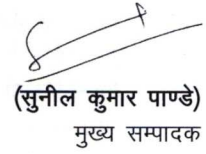 (सुनील कुमार पाण्डे)
मुख्य सम्पादक